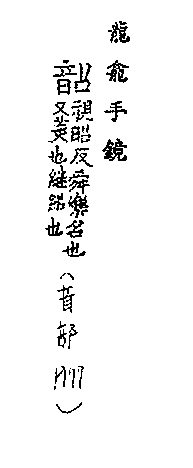 龍龕手鏡
韶視昭反舜樂名也
又美也継紹也
(音部 )